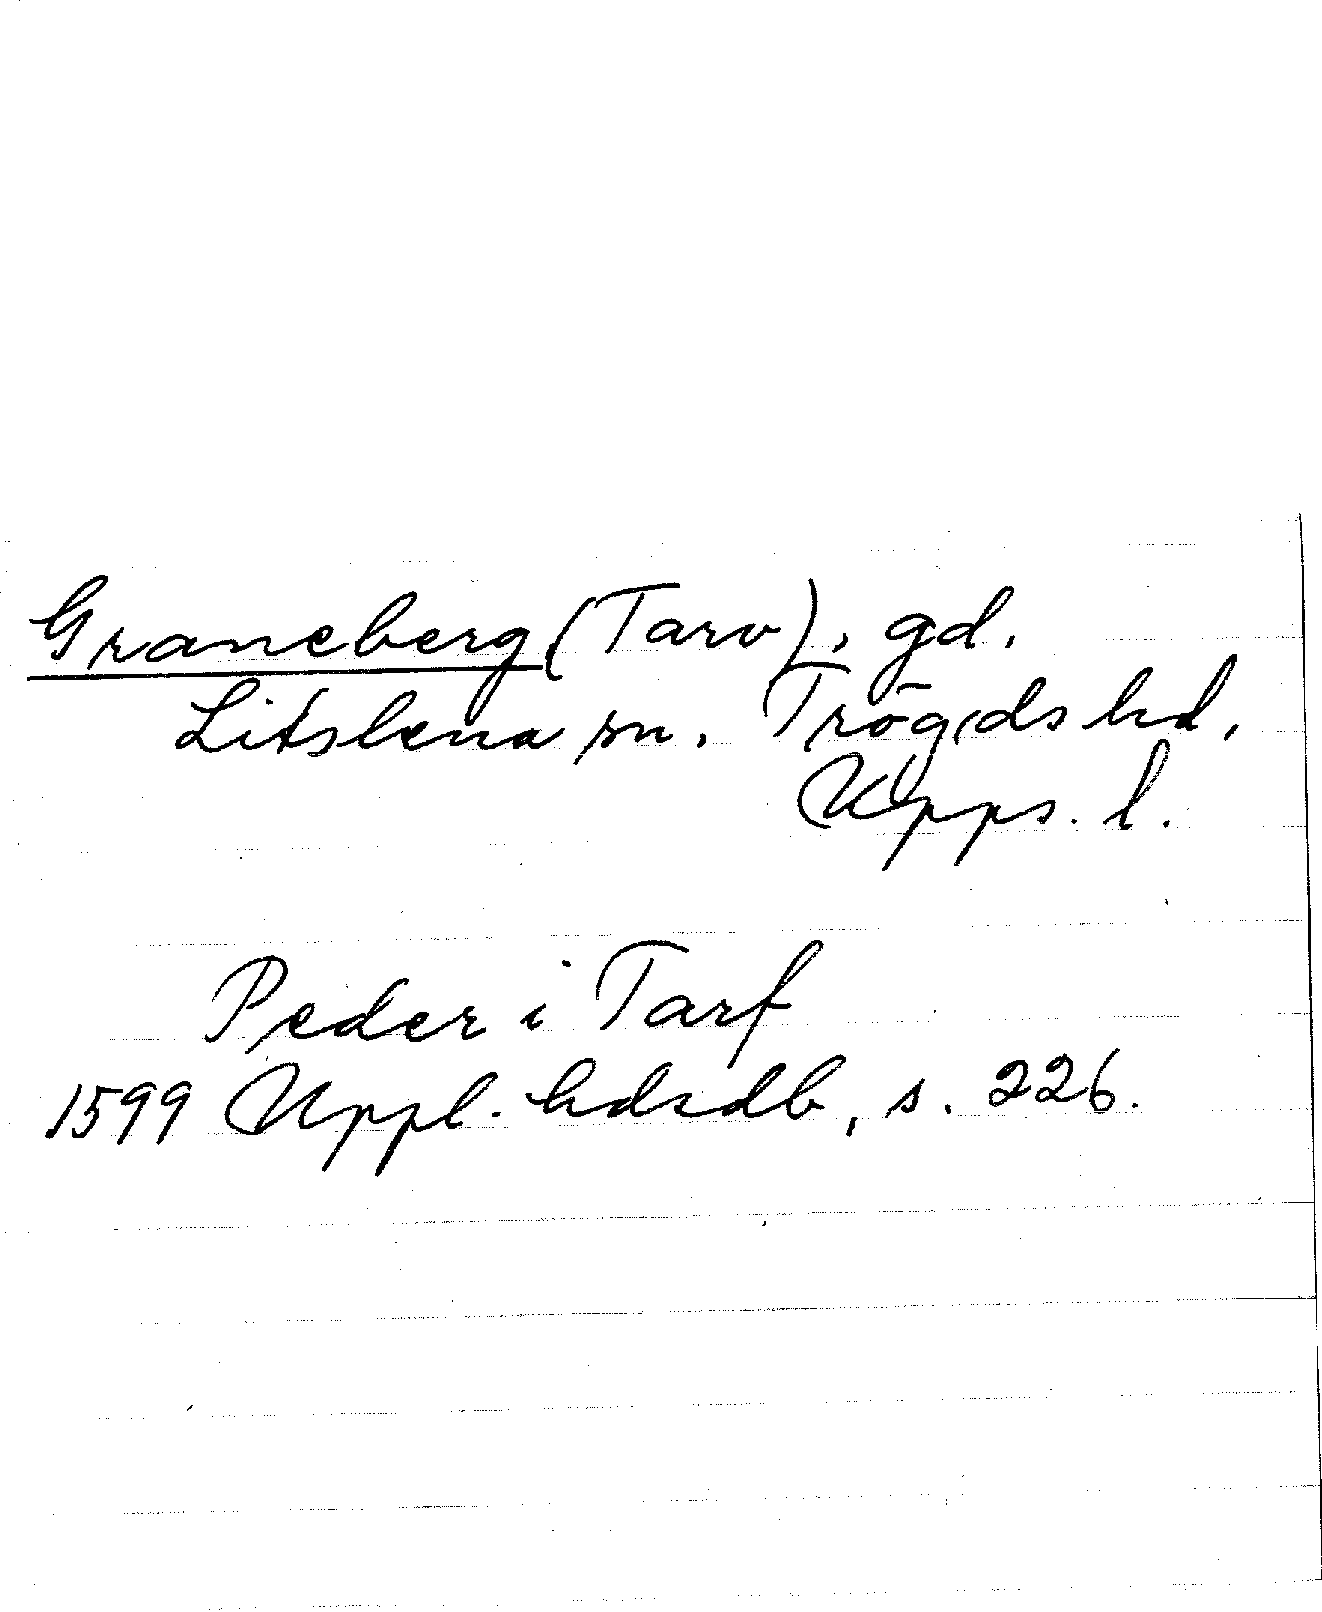 Graneberg (Tarv), gd.
Litslena sn. Trögds hd,
Upps. l.
Peder i Tarf
1599 Uppl. hdsdb, s. 226.